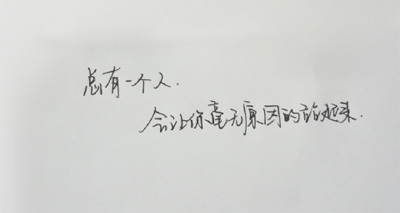 总有一个人.
会让你毫无原因的站起来.